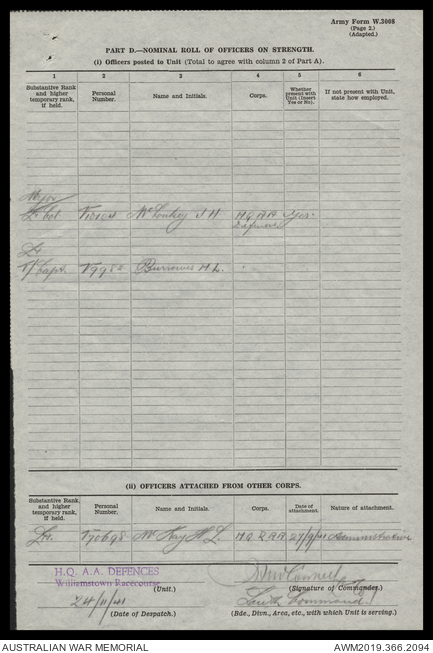 Army Form W.3008
(Page 2.)
(Adapted.)
PART D.—NOMINAL ROLL OF OFFICERS ON STRENGTH.
(i) Officers posted to Unit (Total to agree with column 2 of Part A).
1 2 3 4 5 6
Substantive Rank and higher temporary rank, if held. Personal Number. Name and Initials. Corps. Whether present with Unit (Insert Yes or No). If not present with Unit, state how employed.
Major
Lt Col J H H.Q. A A Yes
Defences
Lt
T/Capt. Burrowes H. L. "
(ii) OFFICERS ATTACHED FROM OTHER CORPS.
Substantive Rank, and higher temporary rank, if held. Personal Number. Name and Initials. Corps. Date of attachment. Nature of attachment.
Lt. McKay H L Administrative
H.Q. A.A. DEFENCES
Williamstown Racecourse
(Unit.) (Signature of Commander.)
24/11/41 Command
(Date of Despatch.) (Bde., Divn., Area, etc., with which Unit is serving.)
AUSTRALIAN WAR MEMORIAL AWM2019.366.2094